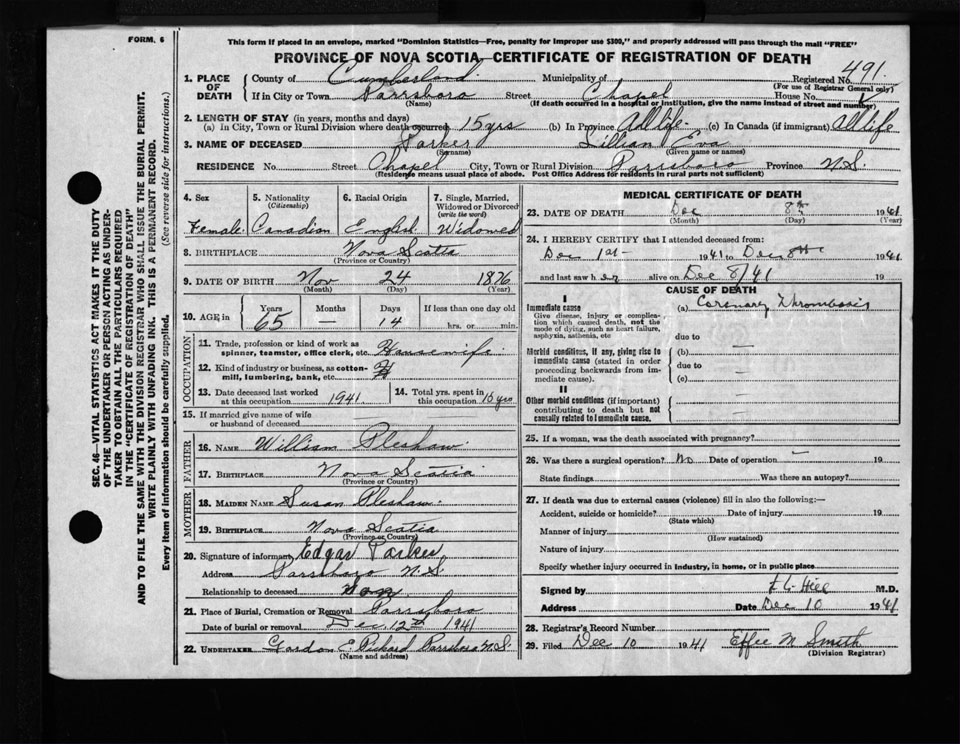 FORM. 6
This form if placed in an envelope, marked "Dominion Statistics—Free, penalty for improper use $300," and properly addressed will pass through the mail "FREE"
PROVINCE OF NOVA SCOTIA—CERTIFICATE OF REGISTRATION OF DEATH
Registered No. 491.
(For use of Registrar General only)
1. PLACE OF DEATH
County of Cumberland Municipality of
If in City or Town Parrsboro Street Chapel House No.
(Name) (If death occurred in a hospital or institution, give the name instead of street and number)
2. LENGTH OF STAY (in years, months and days)
(a) In City, Town or Rural Division where death occurred 15 yrs (b) In Province All life (c) In Canada (if immigrant) All life
3. NAME OF DECEASED Parker Lillian Eva
(Surname) (Given name or names)
RESIDENCE No. Street Chapel City, Town or Rural Division Parrsboro Province N.S.
(Residence means usual place of abode. Post Office Address for residents in rural parts not sufficient)
4. Sex Female
5. Nationality (Citizenship) Canadian
6. Racial Origin English
7. Single, Married, Widowed or Divorced (write the word) Widowed
8. BIRTHPLACE Nova Scotia
(Province or Country)
9. DATE OF BIRTH Nov 24 1876
(Month) (Day) (Year)
10. AGE in Years 65 Months — Days 14 If less than one day old hrs. or min.
OCCUPATION
11. Trade, profession or kind of work as spinner, teamster, office clerk, etc. Housewife
12. Kind of industry or business, as cotton-mill, lumbering, bank, etc.
13. Date deceased last worked at this occupation 1941
14. Total yrs. spent in this occupation 15 yrs
15. If married give name of wife or husband of deceased
FATHER
16. NAME William Pleshaw
17. BIRTHPLACE Nova Scotia
(Province or Country)
MOTHER
18. MAIDEN NAME Susan Pleshaw
19. BIRTHPLACE Nova Scotia
(Province or Country)
20. Signature of informant Edgar Parker
Address Parrsboro N.S.
Relationship to deceased Son
21. Place of Burial, Cremation or Removal Parrsboro
Date of burial or removal Dec. 12th 1941
22. UNDERTAKER Gordon E. Pickard Parrsboro N.S.
(Name and address)
MEDICAL CERTIFICATE OF DEATH
23. DATE OF DEATH Dec 8th 1941
(Month) (Day) (Year)
24. I HEREBY CERTIFY that I attended deceased from:
Dec 1st 1941 to Dec 8th 1941
and last saw her alive on Dec 8/41 19
CAUSE OF DEATH
I
Immediate cause (a) Coronary Thrombosis
Give disease, injury or complication which caused death, not the mode of dying, such as heart failure, asphyxia, asthenia, etc
due to
Morbid conditions, if any, giving rise to immediate cause (stated in order proceeding backwards from immediate cause).
(b) —
due to
(c) —
II
Other morbid conditions (if important) contributing to death but not causally related to immediate cause.
—
25. If a woman, was the death associated with pregnancy?
26. Was there a surgical operation? No Date of operation — 19
State findings Was there an autopsy?
27. If death was due to external causes (violence) fill in also the following:—
Accident, suicide or homicide? Date of injury 19
(State which)
Manner of injury
(How sustained)
Nature of injury
Specify whether injury occurred in industry, in home, or in public place
Signed by F. G. Hill M.D.
Address Date Dec 10 1941
28. Registrar's Record Number
29. Filed Dec 10 1941 Effie M Smith
(Division Registrar)
SEC. 46—VITAL STATISTICS ACT MAKES IT THE DUTY
OF THE UNDERTAKER OR PERSON ACTING AS UNDER-
TAKER TO OBTAIN ALL THE PARTICULARS REQUIRED
IN THE "CERTIFICATE OF REGISTRATION OF DEATH"
AND TO FILE THE SAME WITH THE DIVISION REGISTRAR WHO SHALL ISSUE THE BURIAL PERMIT.
WRITE PLAINLY WITH UNFADING INK. THIS IS A PERMANENT RECORD.
Every item of information should be carefully supplied. (See reverse side for instructions.)